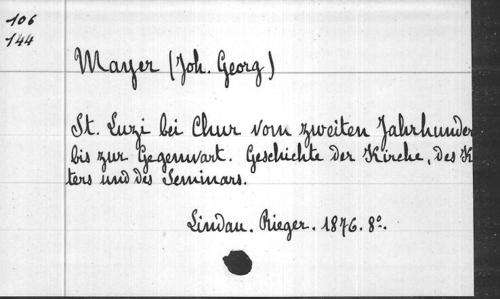 106
144
Mayer (Joh. Georg)
St. Luzi bei Chur vom zweiten Jahrhunder
bis zur Gegenwart. Geschichte der Kirche, des K
ters und des Seminars.
Lindau. Rieger. 1876. 8°.